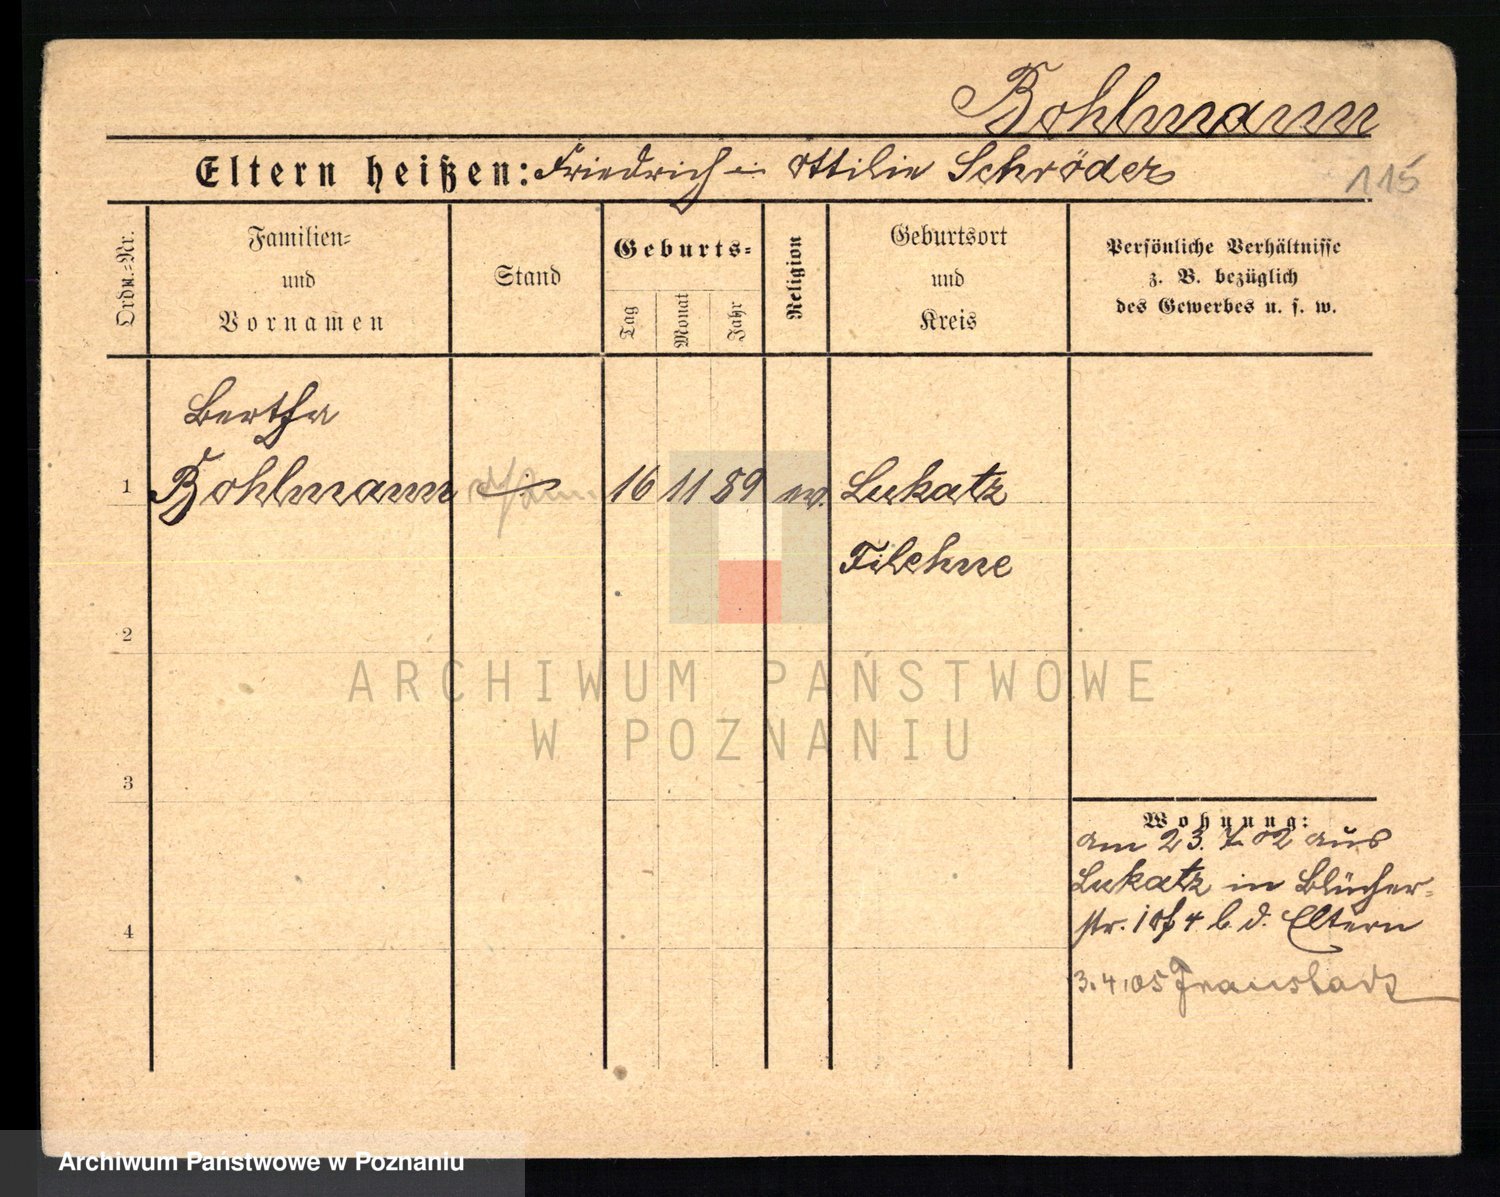 Bohlmann
Eltern heißen: Friedrich u Ottilie Schröder
115
Ordn.=Nr.
Familien=
und
Vornamen
Stand
Geburts=
Tag
Monat
Jahr
Religion
Geburtsort
und
Kreis
Persönliche Verhältnisse
z. B. bezüglich
des Gewerbes u. s. w.
Bertha
1 Bohlmann 16 11 89 ev. Lukatz
Filehne
2
ARCHIWUM PAŃSTWOWE
W POZNANIU
3
Wohnung:
am 23. 7. 02 aus
Lukatz in Blücher=
4
str. 10 4 b. d. Eltern
3.4.05 Fraustadt
Archiwum Państwowe w Poznaniu